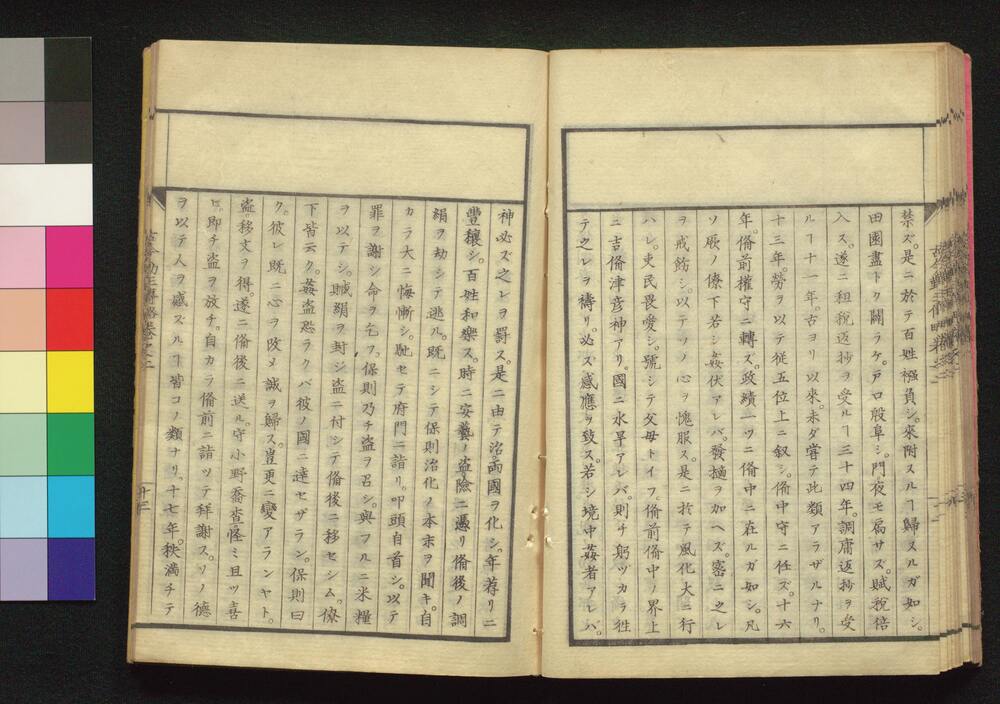 禁ズ。是ニ於テ百姓襁負シ。來附スルヿ歸スルガ如シ。
田園盡トク闢ラケ。戸口殷阜シ。門夜モ扃サズ。賦稅倍
入ス。遂ニ租稅返抄ヲ受ルヿ三十四年。調庸返抄ヲ受
ルヿ十一年。古ヨリ以來。未ダ嘗テ此類アラザルナリ。
十三年。勞ヲ以テ従五位上ニ叙シ。備中守ニ任ズ。十六
年。備前權守ニ轉ズ。政績一ツニ備中ニ在ルガ如シ。凡
ソ厥ノ僚下若シ姦伏アレバ。發擿ヲ加ヘズ。密ニ之レ
ヲ戒飭シ。以テソノ心ヲ愧服ス。是ニ於テ風化大ニ行
ハレ。吏民畏愛シ。號シテ父母トイフ。備前備中ノ界上
ニ吉備津彦神アリ。國ニ水旱アレバ。則チ躬ヅカラ徃
テ之レヲ禱リ。必ズ感應ヲ致ス。若シ境中姦者アレバ。
神必ズ之レヲ罸ス。是ニ由テ治兩國ヲ化シ。年荐リニ
豐穰シ。百姓和樂ス。時ニ安藝ノ盗險ニ憑リ備後ノ調
絹ヲ劫シテ逃ル。既ニシテ保則治化ノ本末ヲ聞キ。自
カラ大ニ悔慚シ。馳セテ府門ニ詣リ。叩頭自首シ。以テ
罪ヲ謝シ命ヲ乞フ。保則乃チ盗ヲ召シ。與フルニ米糧
ヲ以テシ。賊絹ヲ封シ盗ニ付シテ備後ニ移セシム。僚
下皆云ク。姦盗恐ラクバ彼ノ國ニ達セザラン。保則曰
ク。彼レ既ニ心ヲ改メ誠ヲ歸ス。豈更ニ變アランヤト。
盗移文ヲ得。遂ニ備後ニ送ル。守小野喬查怪ミ且ツ喜
ビ。即チ盗ヲ放チ。自カラ備前ニ詣ツテ拜謝ス。ソノ德
ヲ以テ人ヲ感ズルヿ皆コノ類ナリ。十七年。秩滿チテ
十三